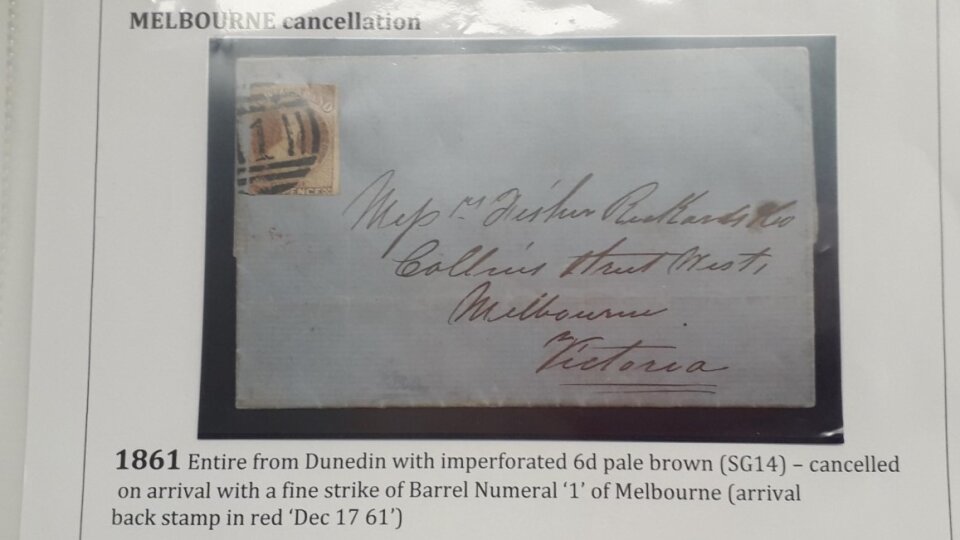 MELBOURNE cancellation
1
ENCE
Mess rs Fisher Co
Collins Street West,
Melbourne
Victoria
1861 Entire from Dunedin with imperforated 6d pale brown (SG14) – cancelled
on arrival with a fine strike of Barrel Numeral ‘1’ of Melbourne (arrival
back stamp in red ‘Dec 17 61’)